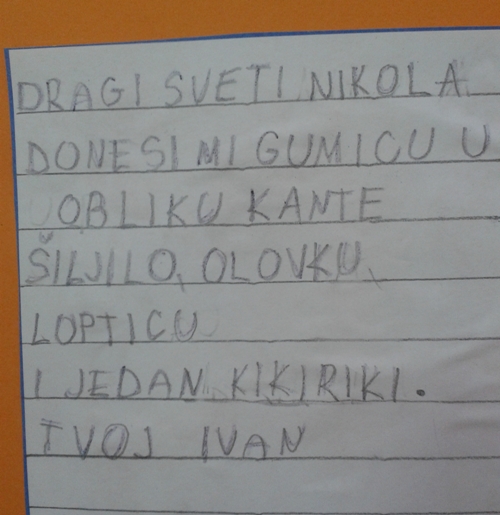 DRAGI SVETI NIKOLA
DONESI MI GUMICU U
OBLIKU KANTE
ŠILJILO, OLOVKU,
LOPTICU
I JEDAN KIKIRIKI.
TVOJ IVAN